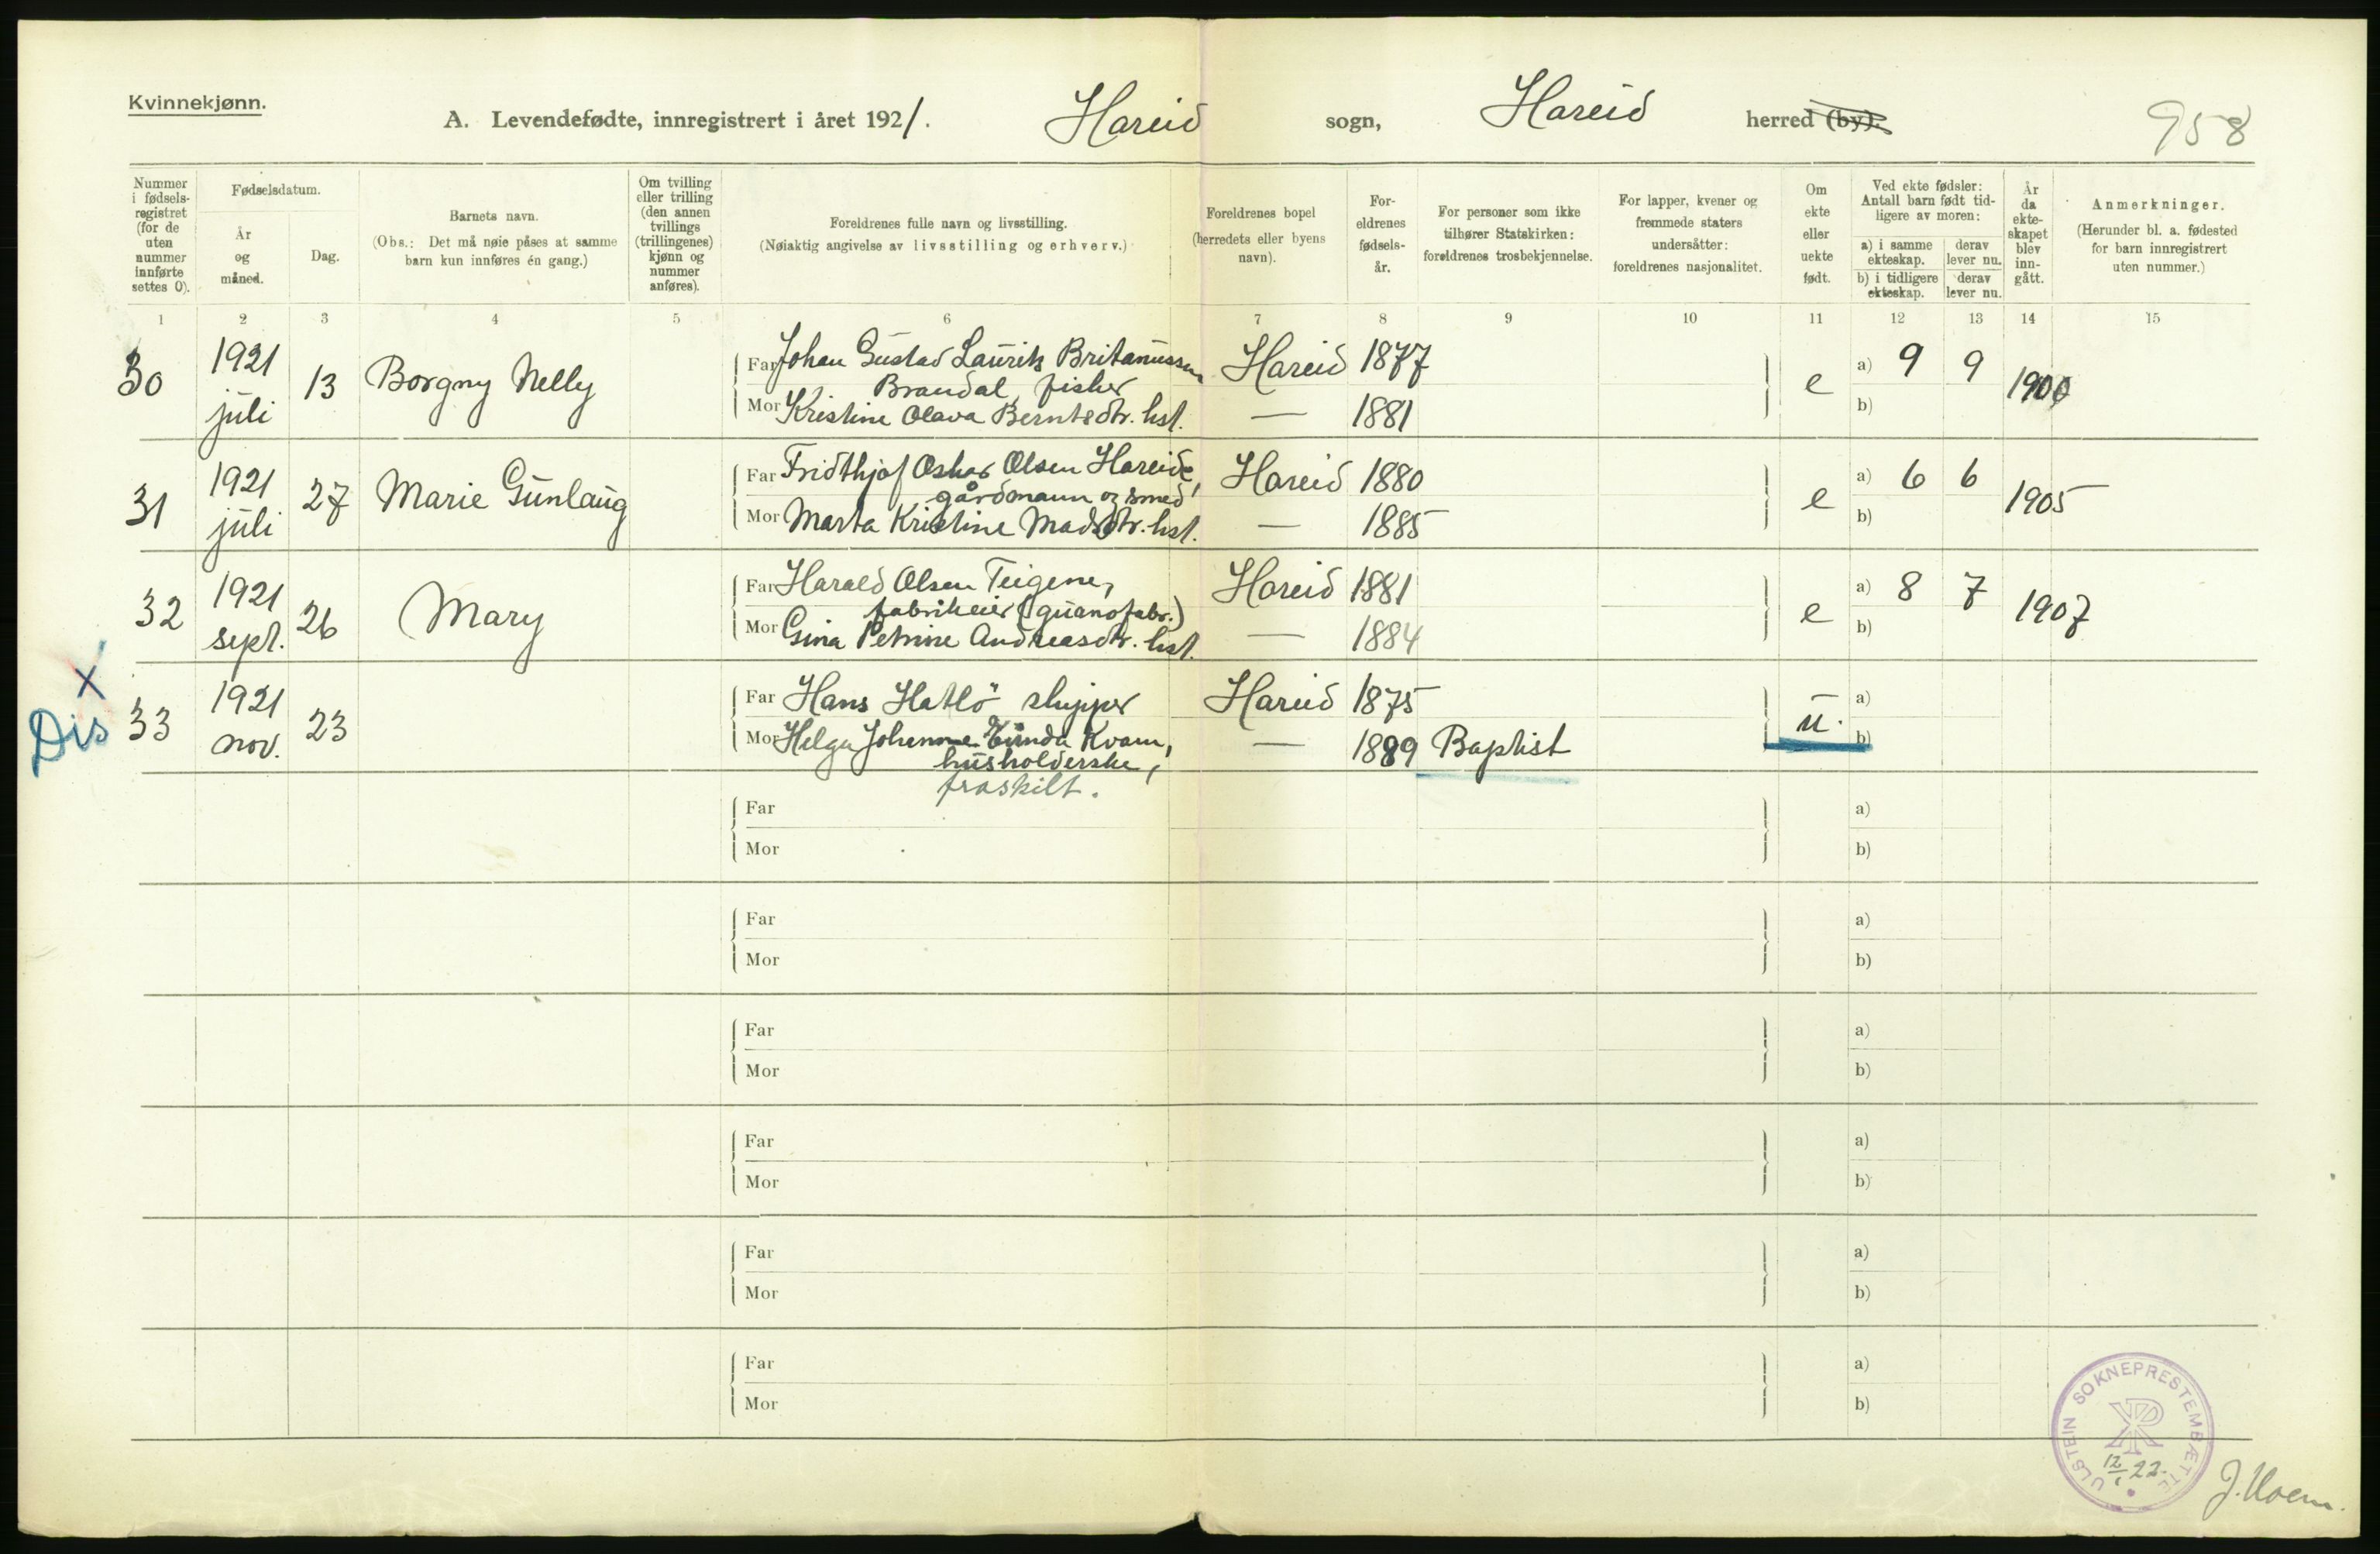 Kvinnekjønn.
A. Levendefødte, innregistrert i året 1921. Hareid sogn, Hareid herred (by).
958
Nummer i fødsels-registret (for de uten nummer innførte settes 0).
Fødselsdatum.
År og måned.
Dag.
Barnets navn.
(Obs.: Det må nøie påses at samme barn kun innføres én gang.)
Om tvilling eller trilling (den annen tvillings (trillingenes) kjønn og nummer anføres).
Foreldrenes fulle navn og livsstilling.
(Nøiaktig angivelse av livsstilling og erhverv.)
Foreldrenes bopel (herredets eller byens navn).
For-eldrenes fødsels-år.
For personer som ikke tilhører Statskirken: foreldrenes trosbekjennelse.
For lapper, kvener og fremmede staters undersåtter: foreldrenes nasjonalitet.
Om ekte eller uekte født.
Ved ekte fødsler: Antall barn født tid-ligere av moren:
a) i samme ekteskap.
derav lever nu.
b) i tidligere ekteskap.
derav lever nu.
År da ekte-skapet blev inn-gått.
Anmerkninger.
(Herunder bl. a. fødested for barn innregistrert uten nummer.)
1 2 3 4 5 6 7 8 9 10 11 12 13 14 15
30 1921 juli 13 Borgny Nelly
Far Johan Gustav Laurits Britanussen Hareid 1877
Brandal, fisker
Mor Kristine Olava Berntsdtr. hst. — 1881
e a) 9 9 1900
b)
31 1921 juli 27 Marie Gunlaug
Far Fridthjof Oskar Olsen Hareide, Hareid 1880
gårdmann og smed
Mor Marta Kristine Madsdtr. hst. — 1885
e a) 6 6 1905
b)
32 1921 sept. 26 Mary
Far Harald Olsen Teigene, Hareid 1881
fabrikeier (guanofabr.)
Mor Gina Petrine Andreasdtr. hst. — 1884
e a) 8 7 1907
b)
X
Dis 33 1921 nov. 23
Far Hans Hatlö skipper Hareid 1875
Mor Helga Johenne Kvam, — 1889 Baptist
husholderske,
fraskilt.
u. a)
b)
Far a)
Mor b)
Far a)
Mor b)
Far a)
Mor b)
Far a)
Mor b)
Far a)
Mor b)
Far a)
Mor b)
ULSTEIN SOKNEPRESTEMBÆTTE
12/1 22.
J. Hoem.